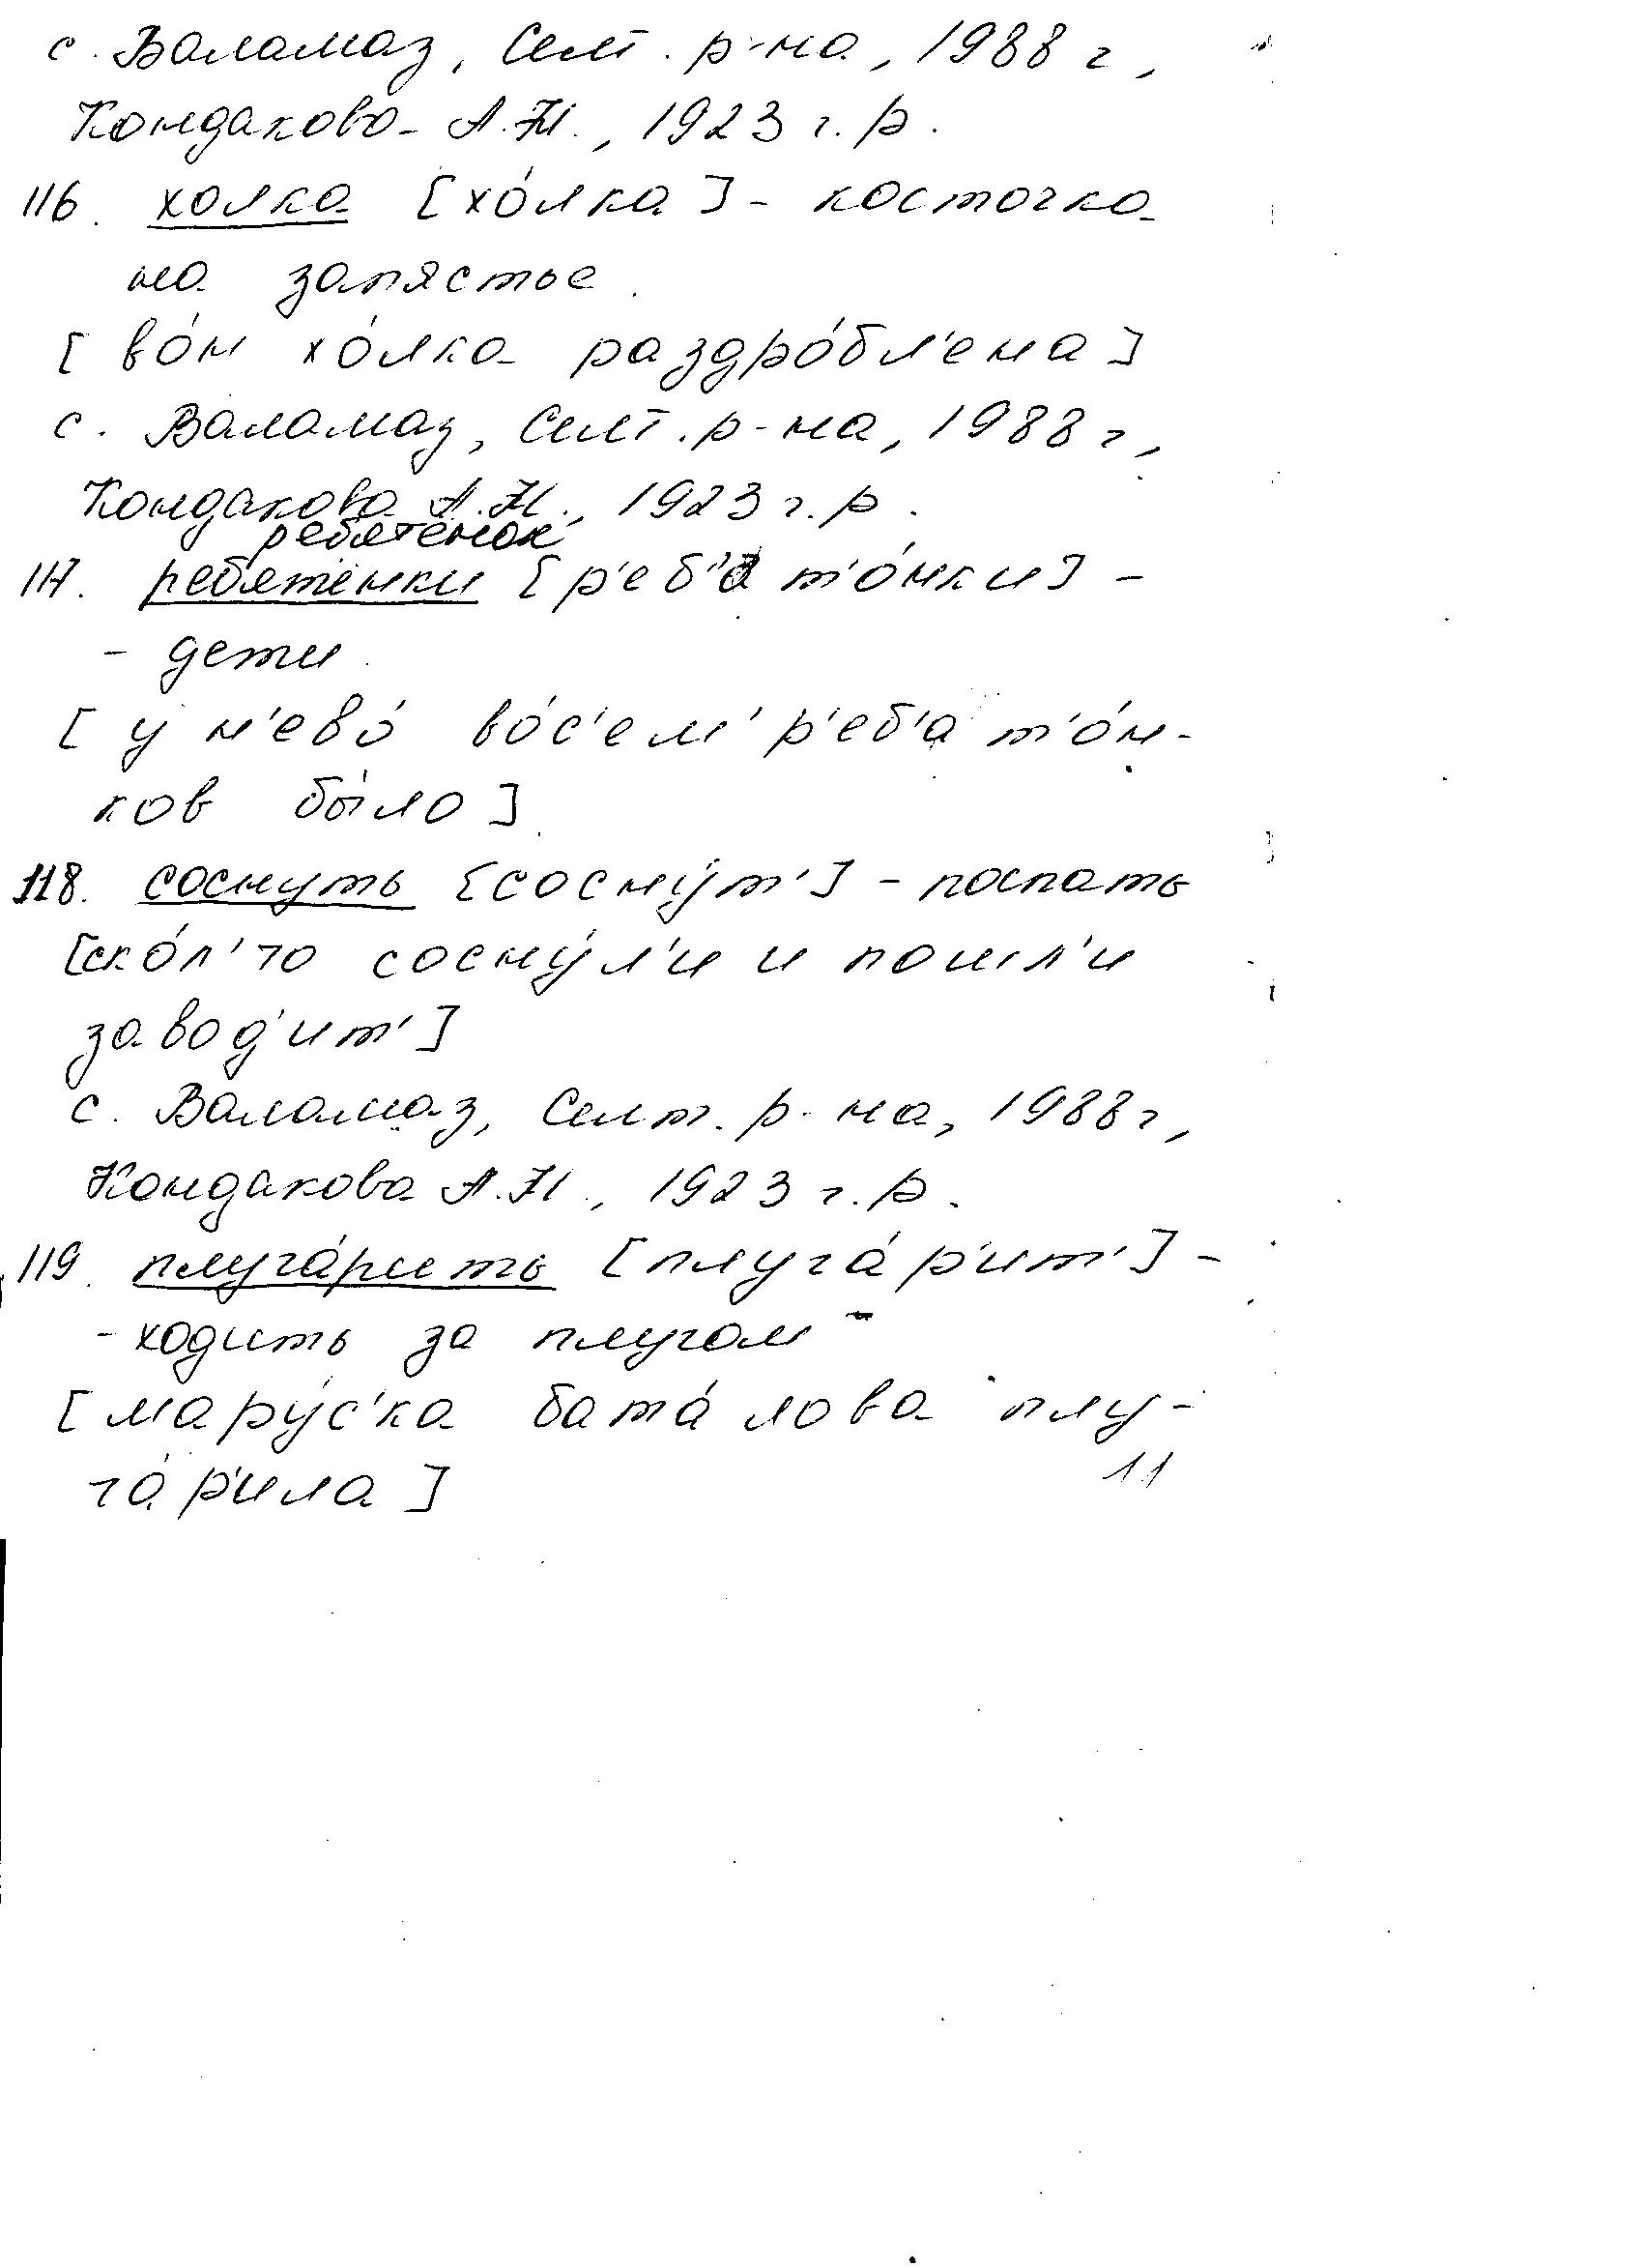 с. Валамаз, Селт. р-на, 1988 г,
Кондакова А.Н., 1923 г.р.
116. холка [хо́лка] - косточка
на запястье.
[ во́н хо́лка раздро́бл'ена ]
с. Валамаз, Селт. р-на, 1988 г,
Кондакова А.Н., 1923 г.р.
ребятёнок
117. ребятёнки [р'еб'ат'о́нки] -
- дети.
[ у н'ево́ во́с'ем' р'еб'ат'о́н-
ков бы́ло ]
118. соснуть [сосну́т'] - поспать
[ско́л'то сосну́л'и и пошл'и
завод'ит']
с. Валамаз, Селт. р-на, 1988 г,
Кондакова А.Н., 1923 г.р.
119. плуга́рить [плуга́р'ит'] -
- ходить за плугом
[мару́с'ка бата́лова плу-
га́р'ила]
11